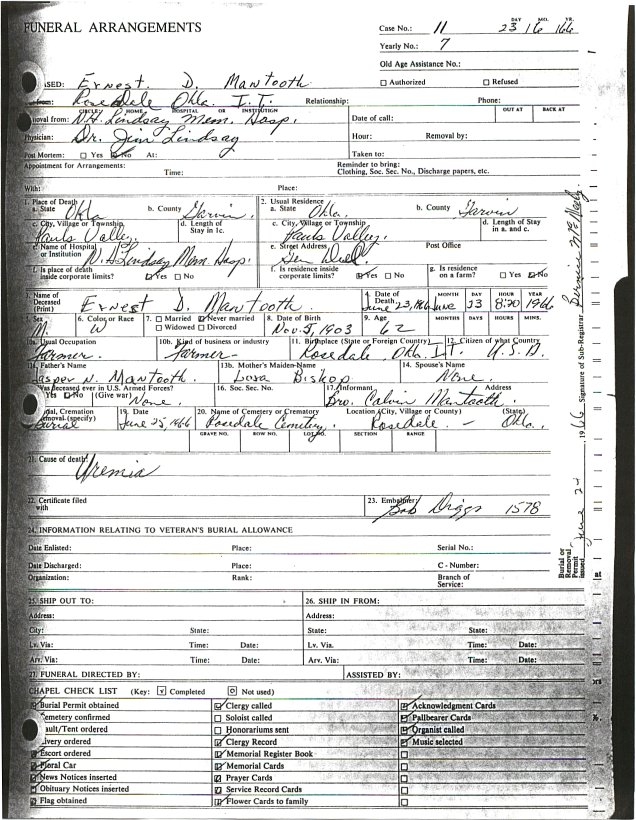 FUNERAL ARRANGEMENTS
Case No.: 11
DAY MO. YR.
23 16 166
Yearly No.: 7
Old Age Assistance No.:
ASED: Ernest D. Mantooth
Authorized Refused
from: Rosedale Okla. I.T. Relationship: Phone:
CIRCLE: HOME HOSPITAL OR INSTITUTION OUT AT BACK AT
oval from: N.H. Lindsay Mem. Hosp. Date of call:
Physician: Dr. Jim Lindsay Hour: Removal by:
Post Mortem: Yes No At: Taken to:
Appointment for Arrangements: Time: Reminder to bring:
Clothing, Soc. Sec. No., Discharge papers, etc.
With: Place:
1. Place of Death
a. State Okla b. County Garvin.
2. Usual Residence
a. State Okla. b. County Garvin
c. City, Village or Township Pauls Valley. d. Length of Stay in 1c.
c. City, Village or Township Pauls Valley. d. Length of Stay in a. and c.
e. Name of Hospital or Institution N.H. Lindsay Mem Hosp.
e. Street Address Gen Del Post Office
f. Is place of death inside corporate limits? Yes No
f. Is residence inside corporate limits? Yes No g. Is residence on a farm? Yes No
3. Name of Deceased (Print) Ernest D. Mantooth.
4. Date of Death June 23, 1966 MONTH DAY HOUR YEAR
June 23 8:30 1966
5. Sex M. 6. Color or Race W 7. Married Never married Widowed Divorced
8. Date of Birth Nov. 5, 1903 9. Age 62 MONTHS DAYS HOURS MINS.
10a. Usual Occupation Farmer. 10b. Kind of business or industry Farmer
11. Birthplace (State or Foreign Country) Rosedale, Okla. I.T. 12. Citizen of what Country U.S.A.
13. Father's Name Jasper N. Mantooth. 13b. Mother's Maiden-Name Bishop 14. Spouse's Name None
Was deceased ever in U.S. Armed Forces? Yes No (Give war) None. 16. Soc. Sec. No. 17. Informant Bro. Calvin Mantooth. Address
Burial, Cremation Removal (specify) Burial 19. Date June 25, 1966 20. Name of Cemetery or Crematory Rosedale Cemetery. Location (City, Village or County) Rosedale. - (State) Okla.
GRAVE NO. ROW NO. LOT NO. SECTION RANGE
21. Cause of death: Uremia
22. Certificate filed with 23. Embalmer Bob Driggs 1578
24. INFORMATION RELATING TO VETERAN'S BURIAL ALLOWANCE
Date Enlisted: Place: Serial No.:
Date Discharged: Place: C - Number:
Organization: Rank: Branch of Service:
Burial or Removal Permit issued June 24 1966 Signature of Sub-Registrar Bernice McNeely
25. SHIP OUT TO: 26. SHIP IN FROM:
Address: Address:
City: State: State: State:
Lv. Via: Time: Date: Lv. Via. Time: Date:
Arv. Via: Time: Date: Arv. Via: Time: Date:
27. FUNERAL DIRECTED BY: ASSISTED BY:
CHAPEL CHECK LIST (Key: Completed Not used)
Burial Permit obtained Clergy called Acknowledgment Cards
Cemetery confirmed Soloist called Pallbearer Cards
ault/Tent ordered Honorariums sent Organist called
ivery ordered Clergy Record Music selected
Escort ordered Memorial Register Book
Floral Car Memorial Cards
News Notices inserted Prayer Cards
Obituary Notices inserted Service Record Cards
Flag obtained Flower Cards to family